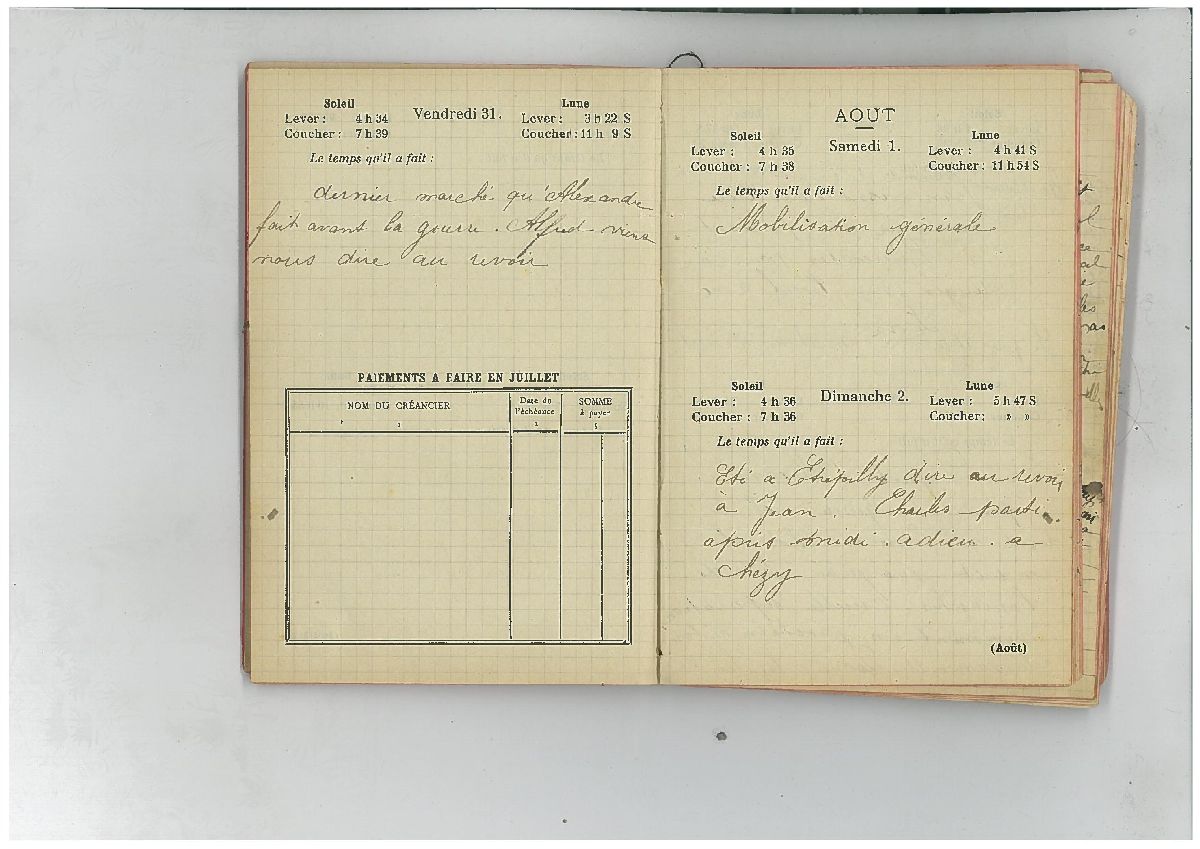 Soleil
Lever : 4 h 34
Coucher : 7 h 39
Vendredi 31.
Lune
Lever : 3 h 22 S
Coucher : 11 h 9 S
Le temps qu'il a fait :
dernier marché qu'Alexandre
fait avant la guerre. Alfred viens
nous dire au revoir
PAIEMENTS A FAIRE EN JUILLET
NOM DU CRÉANCIER
Date de l'échéance
SOMME à payer
AOUT
Soleil
Lever : 4 h 35
Coucher : 7 h 38
Samedi 1.
Lune
Lever : 4 h 41 S
Coucher : 11 h 54 S
Le temps qu'il a fait :
Mobilisation générale
Soleil
Lever : 4 h 36
Coucher : 7 h 36
Dimanche 2.
Lune
Lever : 5 h 47 S
Coucher : » »
Le temps qu'il a fait :
Eté a Etrépilly dire au revoir
à Jean. Charles parti
après midi. adieu. a
Nézy
(Août)